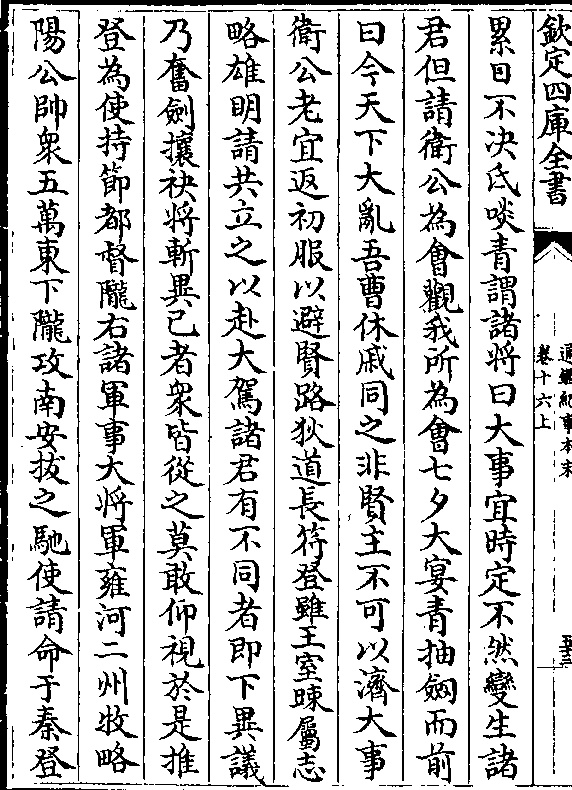 欽定四庫全書
通鑑紀事本末
卷十六上
累日不决氐啖青謂諸將曰大事宜時定不然變生諸
君但請衛公為會觀我所為會七夕大宴青抽劔而前
曰今天下大亂吾曹休戚同之非賢主不可以濟大事
衛公老宜返初服以避賢路狄道長苻登雖王室踈屬志
略雄明請共立之以赴大駕諸君有不同者即下異議
乃奮劔攘袂將斬異己者衆皆從之莫敢仰視於是推
登為使持節都督隴右諸軍事大將軍雍河二州牧略
陽公帥衆五萬東下隴攻南安拔之馳使請命于秦登